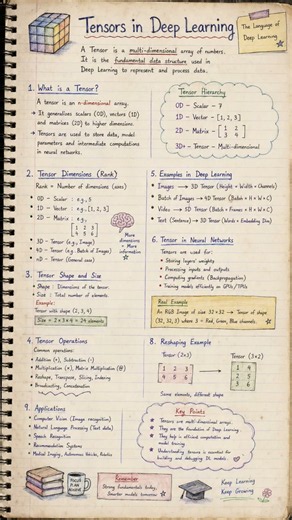 Tensors in Deep Learning
The Language of
Deep Learning
A Tensor is a multi-dimensional array of numbers.
It is the fundamental data structure used in
Deep Learning to represent and process data.
1. What is a Tensor?
A tensor is an n-dimensional array.
→ It generalizes scalars (0D), vectors (1D)
and matrices (2D) to higher dimensions.
→ Tensors are used to store data, model
parameters and intermediate computations
in neural networks.
Tensor Hierarchy
0D - Scalar - 7
1D - Vector - [1, 2, 3]
2D - Matrix -
1 2
3 4
3D+ - Tensor - Multi-dimensional
2. Tensor Dimensions (Rank)
Rank = Number of dimensions (axes)
0D - Scalar : e.g., 5
1D - Vector : e.g., [1, 2, 3]
2D - Matrix : e.g.,
1 2 3
4 5 6
3D - Tensor (e.g., Image)
4D - Tensor (e.g., Batch of Images)
nD - Tensor (General case)
More
dimensions
= More
information
5. Examples in Deep Learning
• Images → 3D Tensor (Height × Width × Channels)
• Batch of Images → 4D Tensor (Batch × H × W × C)
• Video → 5D Tensor (Batch × Frames × H × W × C)
• Text (Sentence) → 3D Tensor (Words × Embedding Dim)
6. Tensor in Neural Networks
Tensors are used for:
• Storing layers' weights
• Processing inputs and outputs
• Computing gradients (Backpropagation)
• Training models efficiently on GPUs/TPUs
3. Tensor Shape and Size
• Shape : Dimensions of the tensor.
• Size : Total number of elements.
Example:
Tensor with shape (2, 3, 4)
Size = 2 × 3 × 4 = 24 elements
Real Example
An RGB Image of size 32 × 32 → Tensor of shape
(32, 32, 3) where 3 = Red, Green, Blue channels.
4. Tensor Operations
Common operations:
• Addition (+), Subtraction (-)
• Multiplication (×), Matrix Multiplication (@)
• Reshape, Transpose, Slicing, Indexing
• Broadcasting, Concatenation
8. Reshaping Example
Tensor (2×3)
Tensor (3×2)
1 2 3
4 5 6
1 2
3 4
5 6
Same elements, different shape
9. Applications
• Computer Vision (Image recognition)
• Natural Language Processing (Text data)
• Speech Recognition
• Recommendation Systems
• Medical Imaging, Autonomous Vehicles, Robotics
Key Points
• Tensors are multi-dimensional arrays.
• They are the foundation of Deep Learning.
• They help in efficient computation and
model training.
• Understanding tensors is essential for
building and debugging DL models.
Remember
Strong fundamentals today,
Smarter models tomorrow
Keep Learning
Keep Growing